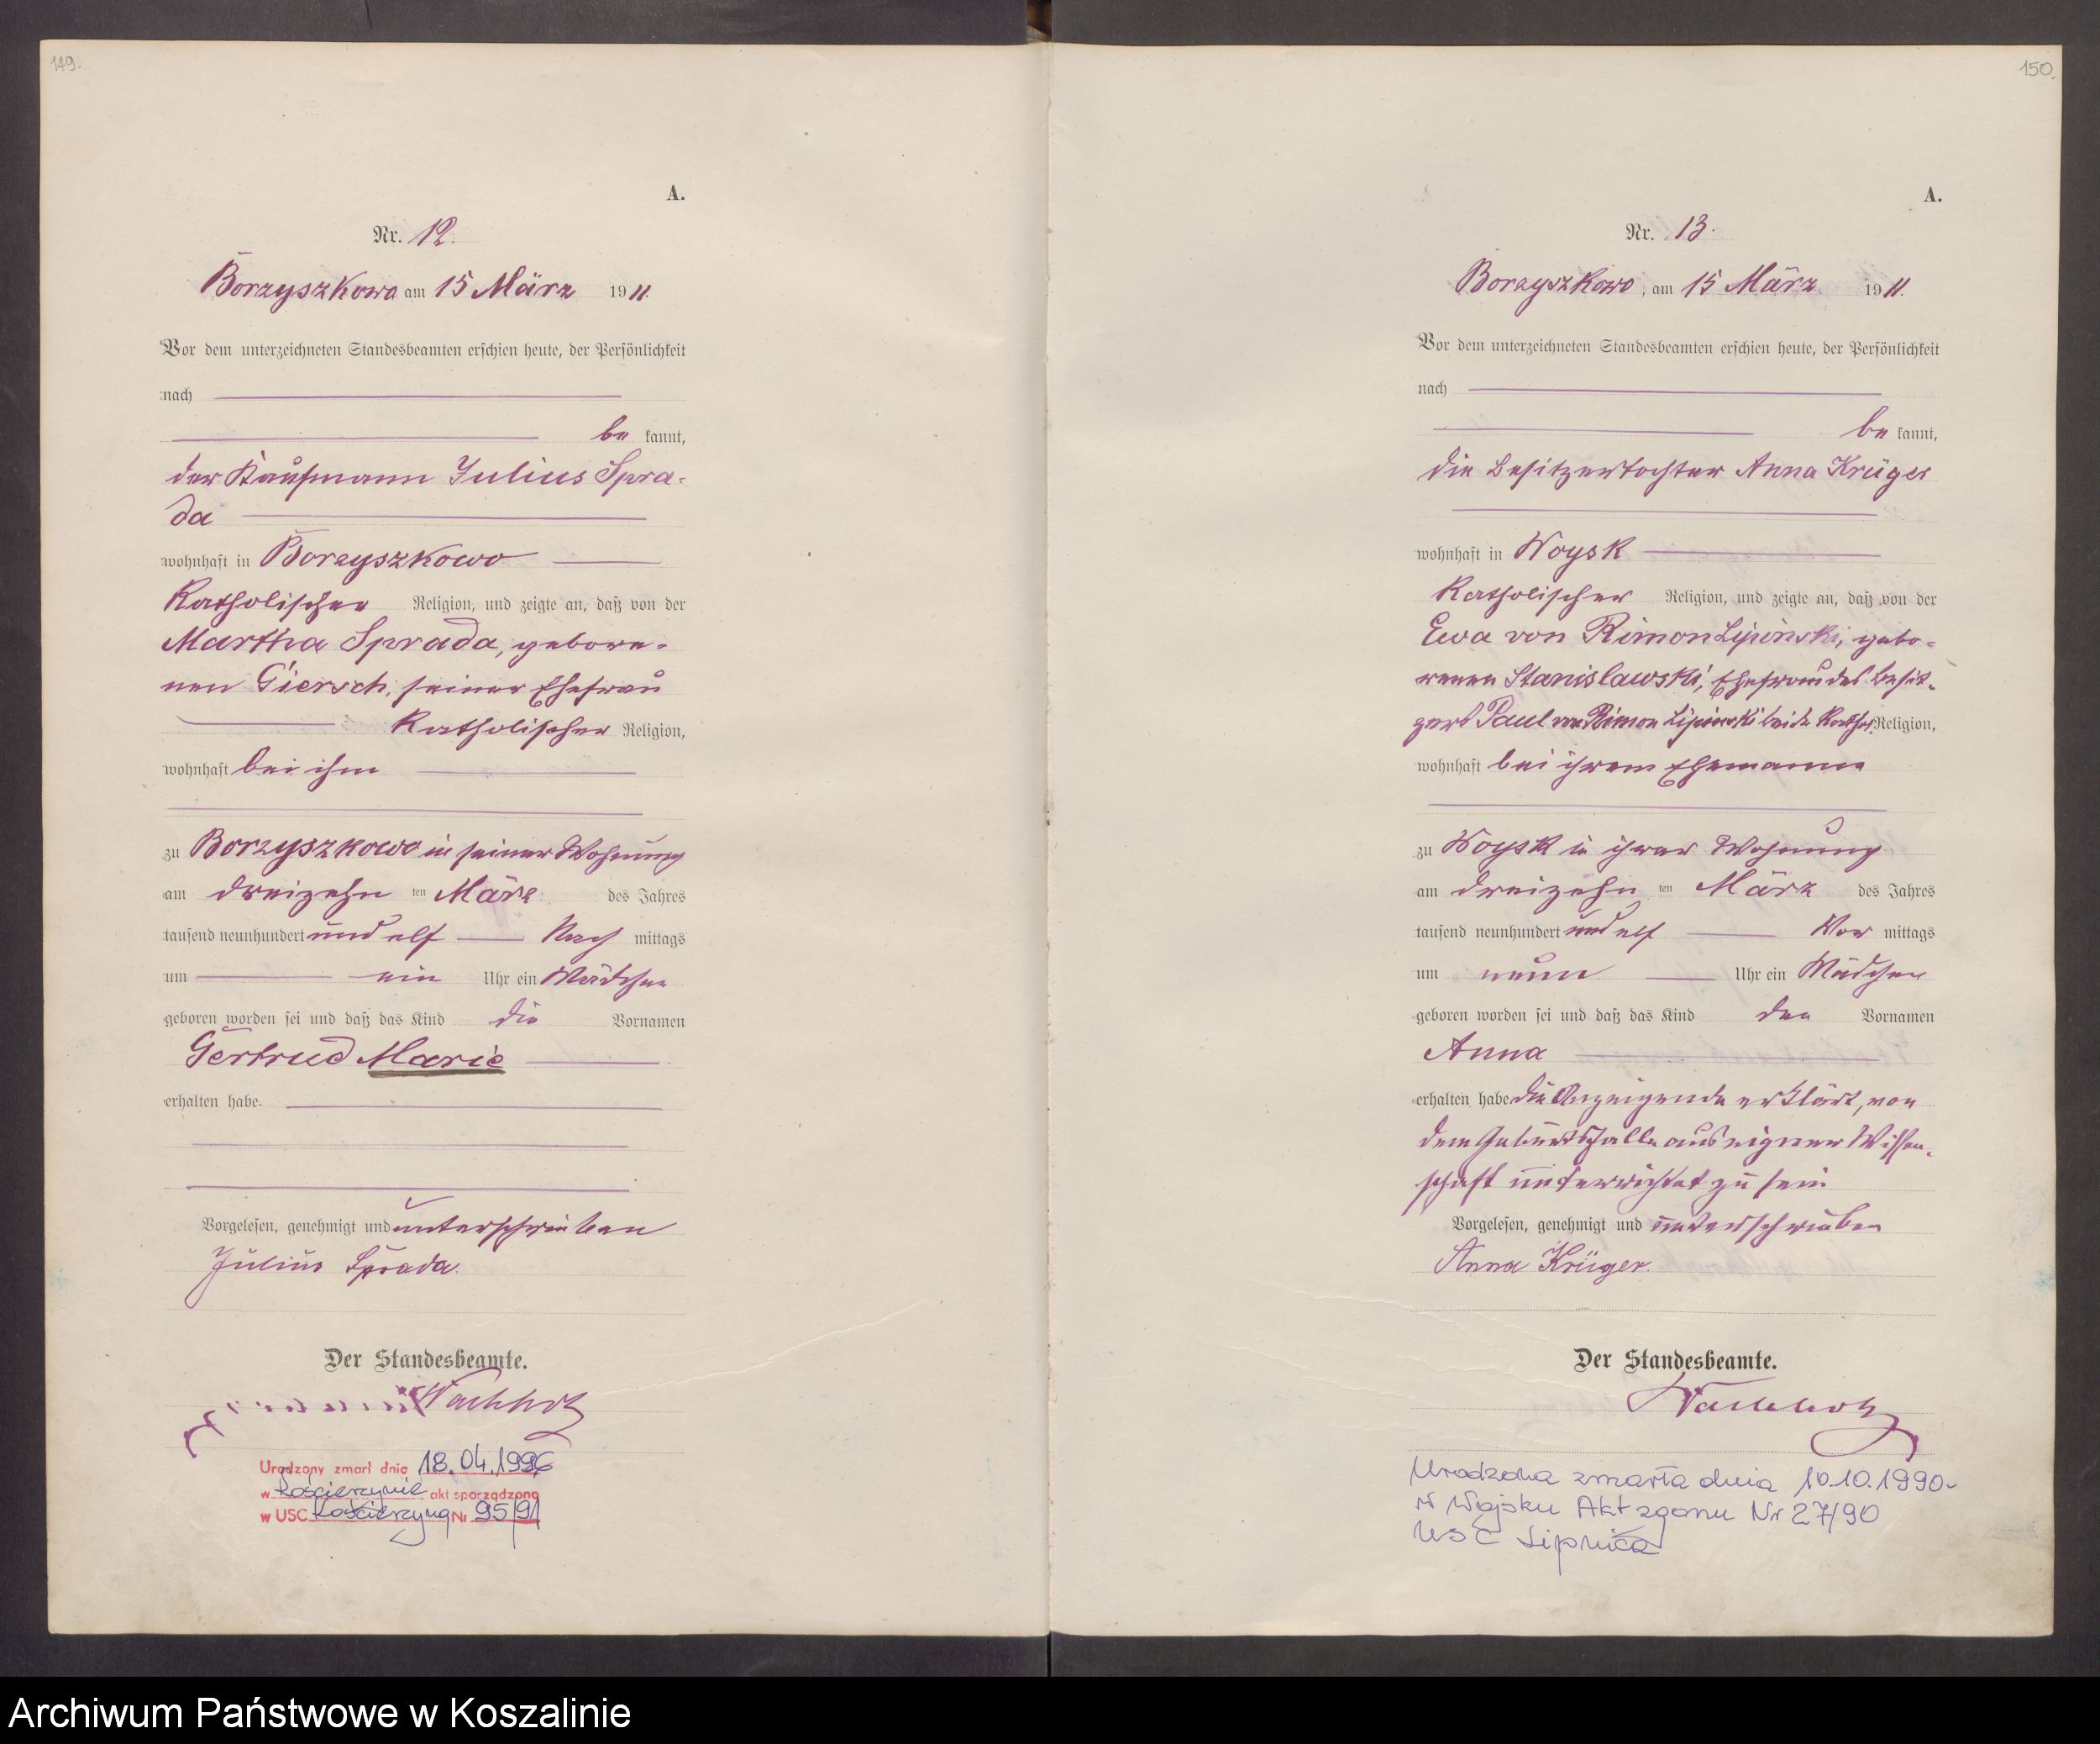 149.
A.
Nr. 12.
Borzyszkowo am 15 März 1911.
Vor dem unterzeichneten Standesbeamten erschien heute, der Persönlichkeit
nach
be kannt,
der Kaufmann Julius Spra-
da
wohnhaft in Borzyszkowo
Katholischer Religion, und zeigte an, daß von der
Martha Sprada, gebore-
nen Giersch, seiner Ehefrau
Katholischer Religion,
wohnhaft bei ihm
zu Borzyszkowo in seiner Wohnung
am dreizehn ten März des Jahres
tausend neunhundert und elf Nach mittags
um ein Uhr ein Mädchen
geboren worden sei und daß das Kind die Vornamen
Gertrud Marie
erhalten habe.
Vorgelesen, genehmigt und unterschrieben
Julius Sprada.
Der Standesbeamte.
Wachholz
Urodzony zmarł dnia 18.04.1996
w Kościerzynie akt sporządzono
w USC Kościerzyna Nr 95/91
150.
A.
Nr. 13.
Borzyszkowo, am 15 März 1911.
Vor dem unterzeichneten Standesbeamten erschien heute, der Persönlichkeit
nach
be kannt,
die Besitzertochter Anna Krüger
wohnhaft in Woysk
Katholischer Religion, und zeigte an, daß von der
Ewa von Rimon Lipinski, gebo-
renen Stanislawski, Ehefrau des Besit-
zers Paul von Rimon Lipinski beide Kathol. Religion,
wohnhaft bei ihrem Ehemanne
zu Woysk in ihrer Wohnung
am dreizehn ten März des Jahres
tausend neunhundert und elf Vor mittags
um neun Uhr ein Mädchen
geboren worden sei und daß das Kind den Vornamen
Anna
erhalten habe die Anzeigende erklärt, von
dem Geburtsfalle aus eigner Wissen-
schaft unterrichtet zu sein
Vorgelesen, genehmigt und unterschrieben
Anna Krüger.
Der Standesbeamte.
Wachholz
Urodzona zmarła dnia 10.10.1990.
w Wojsku Akt zgonu Nr 27/90
USC Lipnica
Archiwum Państwowe w Koszalinie